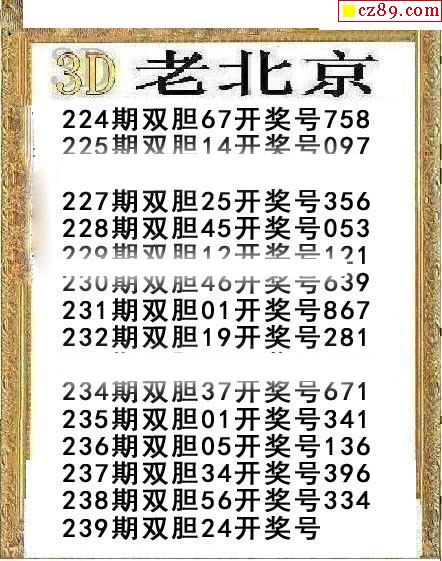 cz89.com
3D 老北京
224期双胆67开奖号758
225期双胆14开奖号097
227期双胆25开奖号356
228期双胆45开奖号053
229期双胆12开奖号121
230期双胆46开奖号639
231期双胆01开奖号867
232期双胆19开奖号281
234期双胆37开奖号671
235期双胆01开奖号341
236期双胆05开奖号136
237期双胆34开奖号396
238期双胆56开奖号334
239期双胆24开奖号